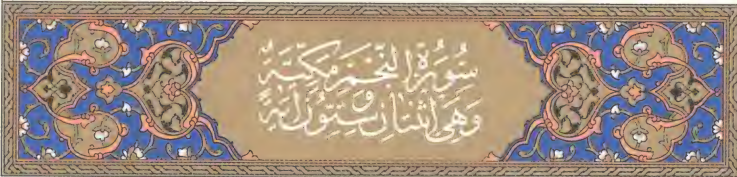 سُورَةُ النَّجْمِ مَكِّيَّةٌ
وَهِيَ اثْنَانِ وَسِتُّونَ آيَةً